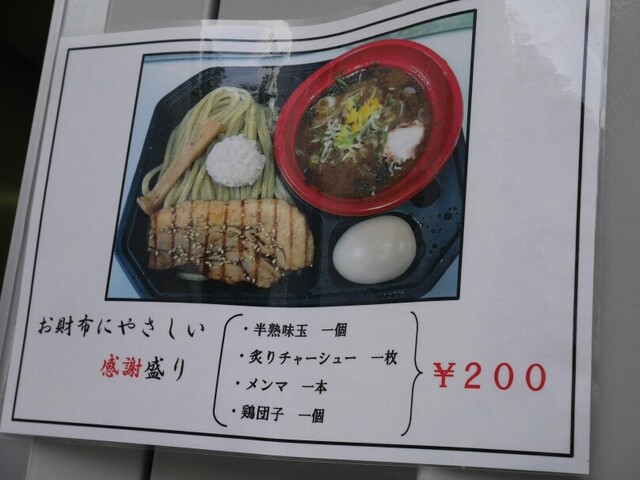 お財布にやさしい
感謝盛り
・半熟味玉 一個
・炙りチャーシュー 一枚
・メンマ 一本
・鶏団子 一個
￥２００